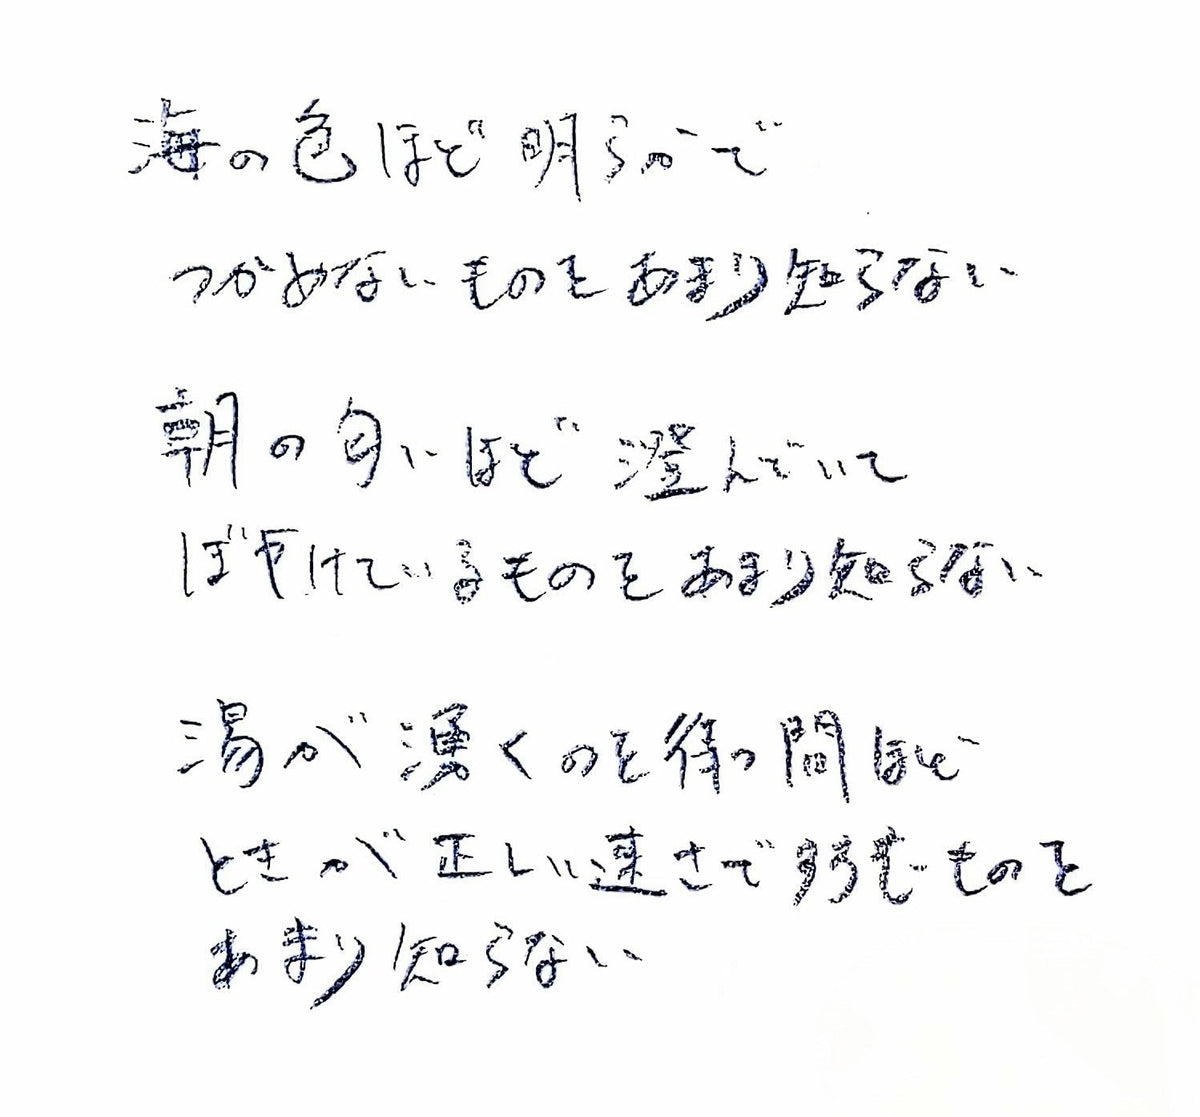 海の色ほど明らかで
つかめないものをあまり知らない
朝の匂いほど澄んでいて
ぼやけているものをあまり知らない
湯が湧くのを待つ間ほど
ときが正しい速さで ものを
あまり知らない